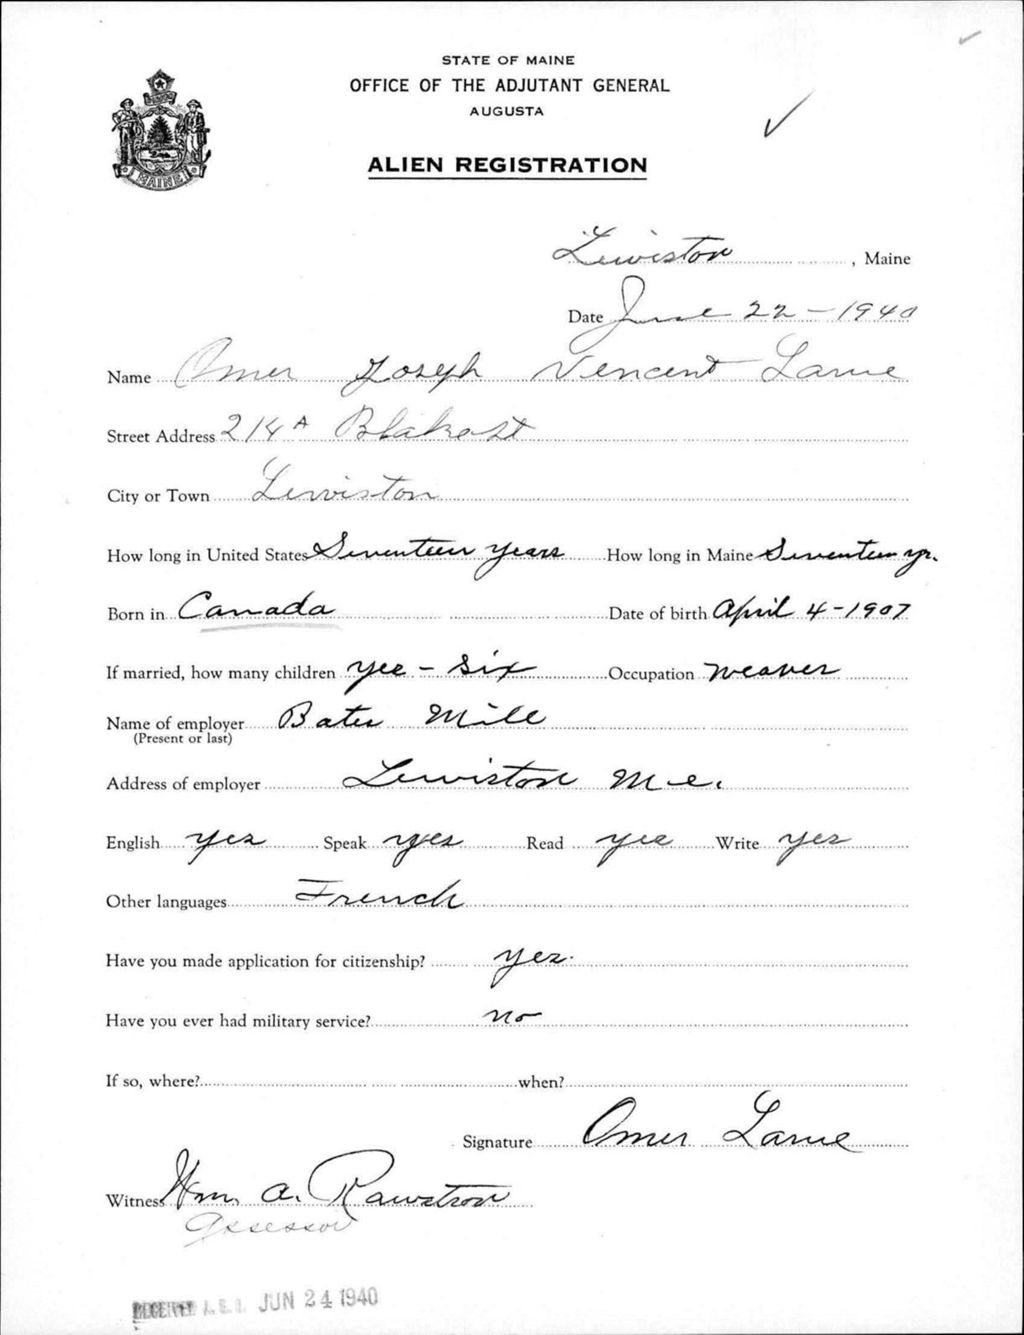 STATE OF MAINE
OFFICE OF THE ADJUTANT GENERAL
AUGUSTA
ALIEN REGISTRATION
MAINE
Lewiston, Maine
Date June 22-1940
Name Omer Joseph Vencent Larue
Street Address 214A Blake St
City or Town Lewiston
How long in United States Seventeen years How long in Maine Seventeen yr.
Born in Canada Date of birth April 4-1907
If married, how many children yes - six Occupation weaver
Name of employer Bates Mill
(Present or last)
Address of employer Lewiston Me.
English yes Speak yes Read yes Write yes
Other languages French
Have you made application for citizenship? yes.
Have you ever had military service? no
If so, where? when?
Signature Omer Larue
Witness Wm. A. Rawstron
Assessor
RECEIVED A.G.O. JUN 24 1940